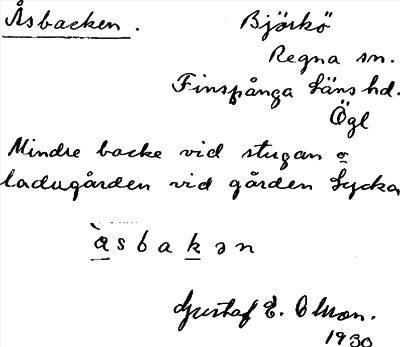 Åsbacken. Björkö
Regna sn.
Finspånga läns hd.
Ögl
Mindre backe vid stugan o
ladugården vid gården Lycka
àsbakən
Gustaf E. Olson.
1930